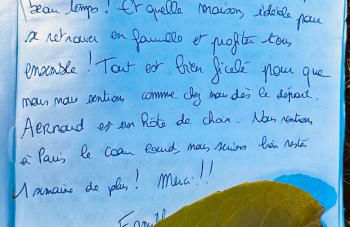 beau temps ! Et quelle maison, idéale pour
se retrouver en famille et profiter tous
ensemble ! Tout est bien ficelé pour que
nous nous sentions comme chez nous dès le départ.
AERNOUD est un hôte de choix. Nous rentrons
à Paris le cœur lourd, nous serions bien restés
1 semaine de plus ! Merci !!